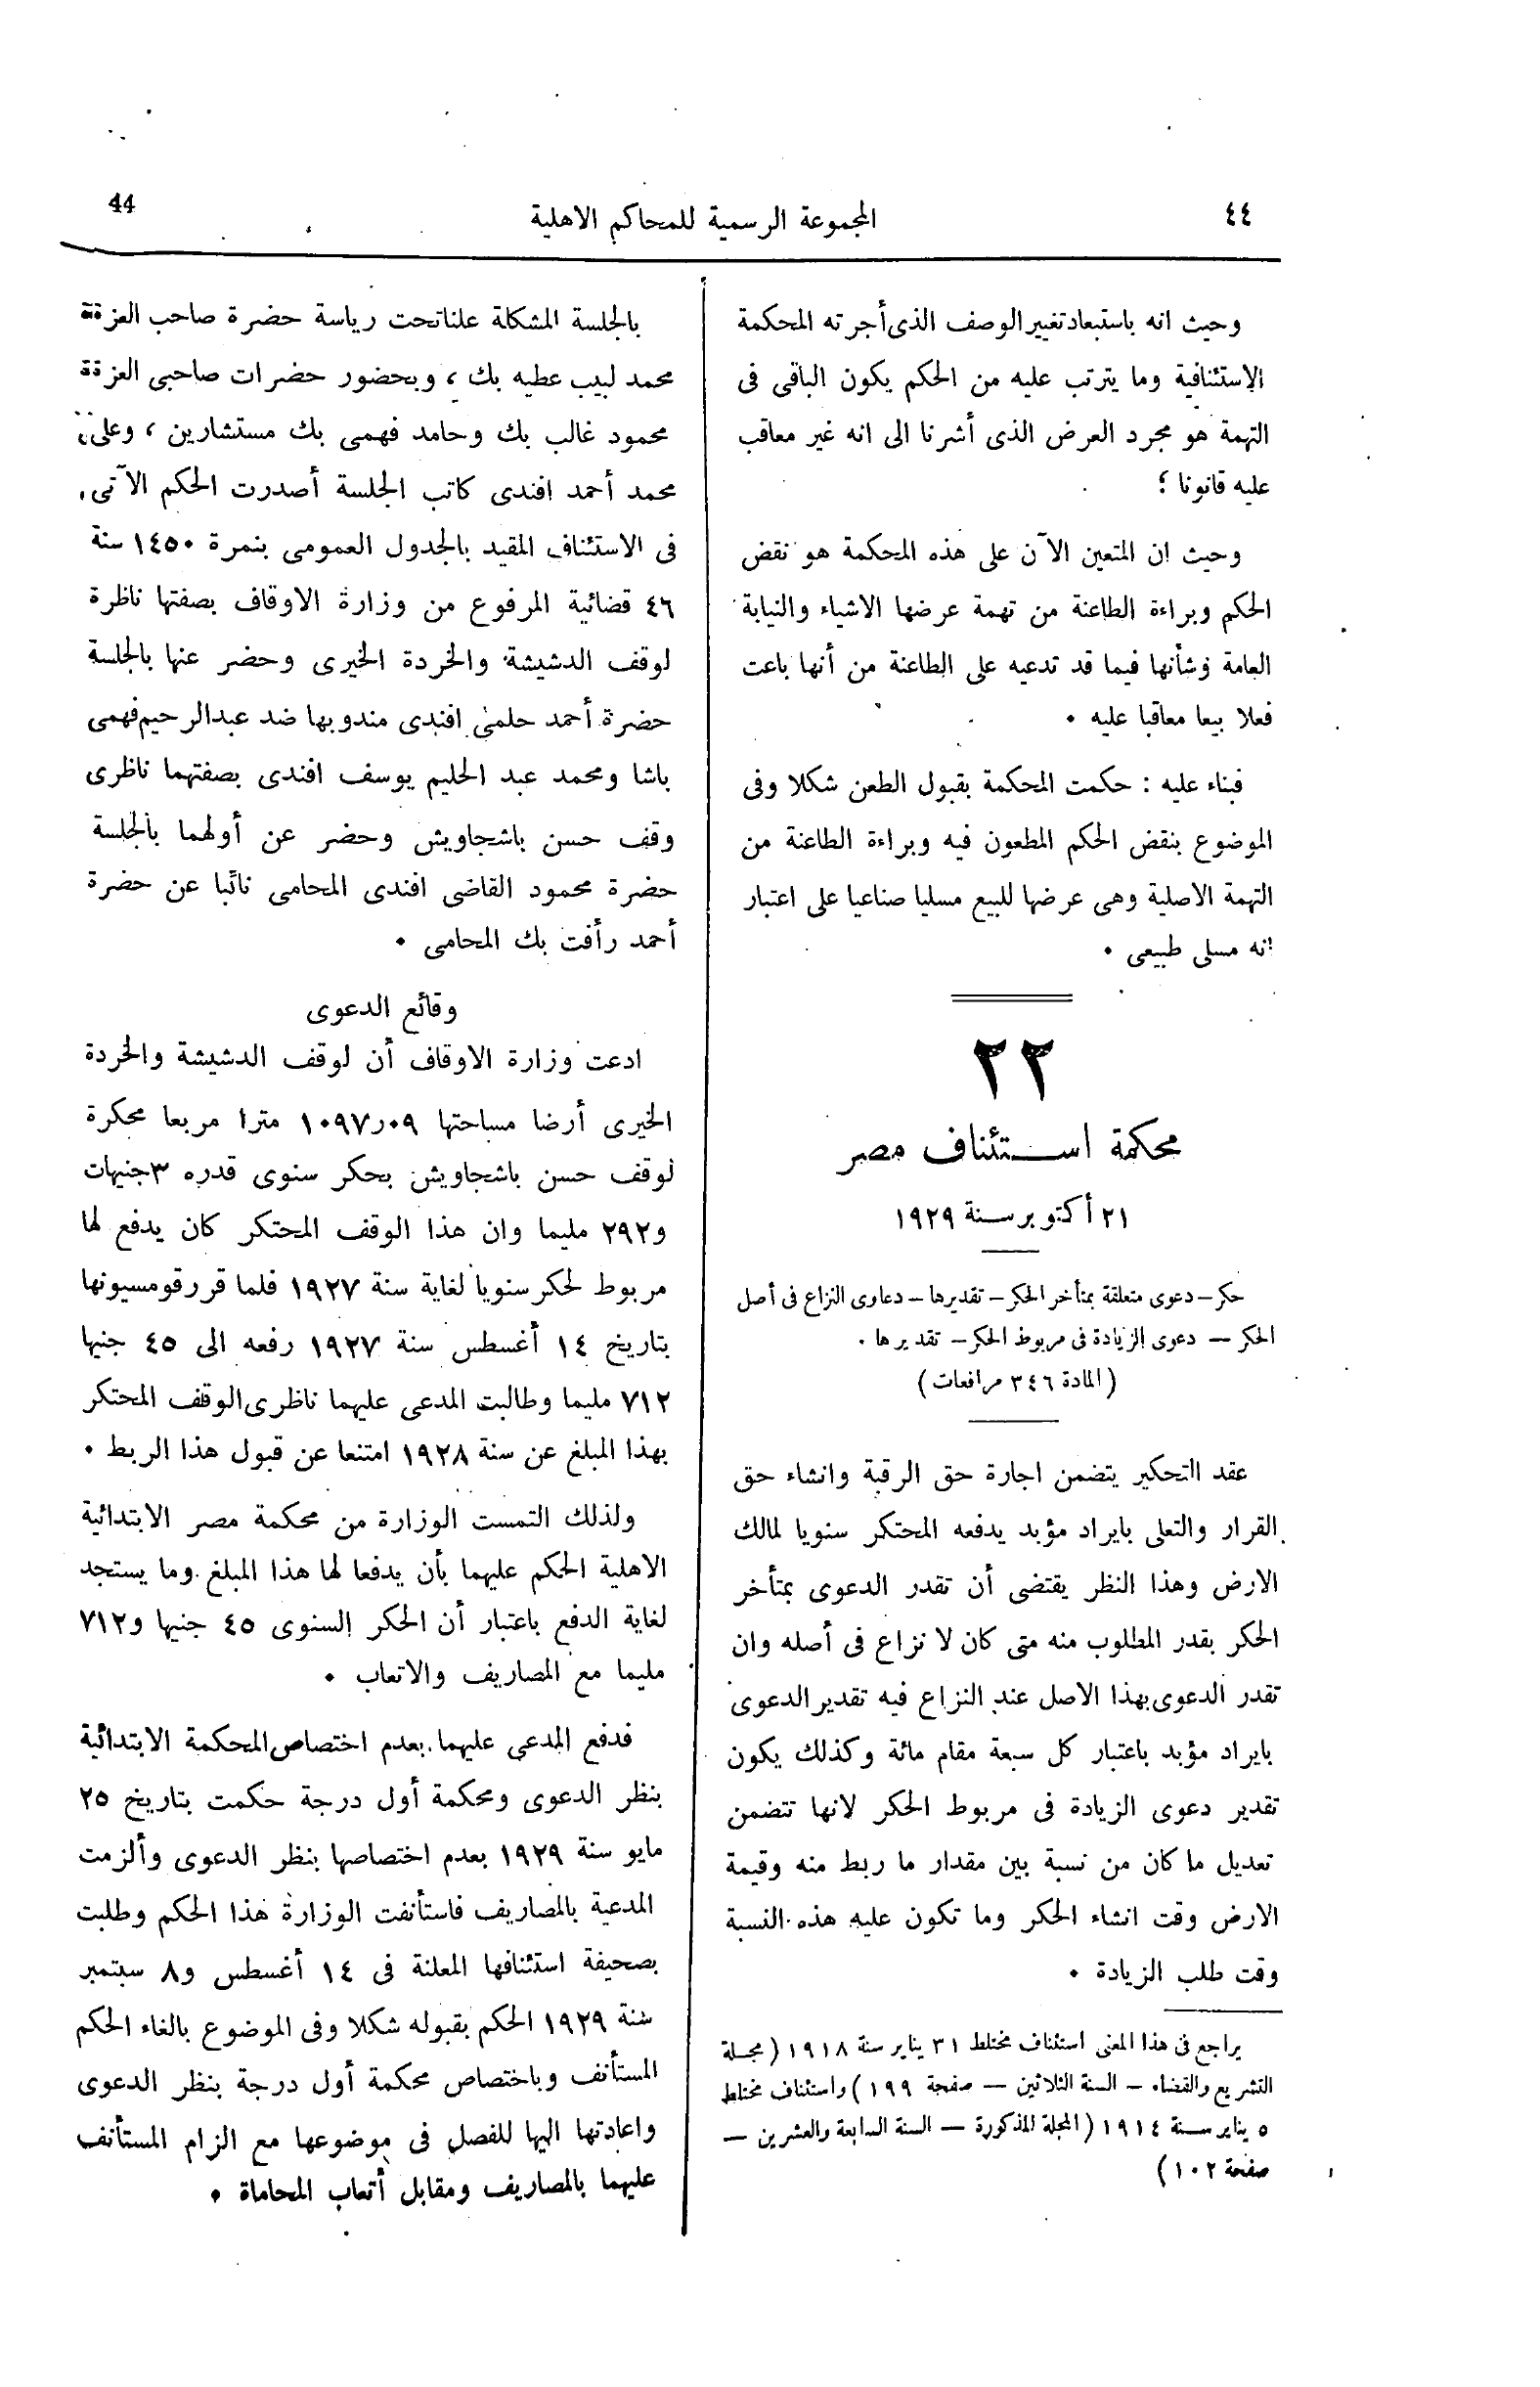 ٤٤
المجموعة الرسمية للمحاكم الاهلية
44
وحيث انه باستبعاد تغيير الوصف الذى أجرته المحكمة
الاستئنافية وما يترتب عليه من الحكم يكون الباقى فى
التهمة هو مجرد العرض الذى أشرنا الى انه غير معاقب
عليه قانونا ؛
وحيث ان المتعين الآن على هذه المحكمة هو نقض
الحكم وبراءة الطاعنة من تهمة عرضها الاشياء والنيابة
العامة وشأنها فيما قد تدعيه على الطاعنة من أنها باعت
فعلا بيعا معاقبا عليه ٠
فبناء عليه : حكمت المحكمة بقبول الطعن شكلا وفى
الموضوع بنقض الحكم المطعون فيه وبراءة الطاعنة من
التهمة الاصلية وهى عرضها للبيع مسليا صناعيا على اعتبار
انه مسلى طبيعى ٠
٢٢
محكمة استئناف مصر
٢١ أكتوبر سنة ١٩٢٩
حكر — دعوى متعلقة بمتأخر الحكر — تقديرها — دعاوى النزاع فى أصل
الحكر — دعوى الزيادة فى مربوط الحكر — تقديرها ٠
(المادة ٣٤٦ مرافعات)
عقد التحكير يتضمن اجارة حق الرقبة وانشاء حق
القرار والتعلى بايراد مؤبد يدفعه المحتكر سنويا لمالك
الارض وهذا النظر يقتضى أن تقدر الدعوى بمتأخر
الحكر بقدر المطلوب منه متى كان لا نزاع فى أصله وان
تقدر الدعوى بهذا الاصل عند النزاع فيه تقدير الدعوى
بايراد مؤبد باعتبار كل سبعة مقام مائة وكذلك يكون
تقدير دعوى الزيادة فى مربوط الحكر لانها تتضمن
تعديل ما كان من نسبة بين مقدار ما ربط منه وقيمة
الارض وقت انشاء الحكر وما تكون عليه هذه النسبة
وقت طلب الزيادة ٠
يراجع فى هذا المعنى استئناف مختلط ٣١ يناير سنة ١٩١٨ (مجلة
التشريع والقضاء — السنة الثلاثين — صفحة ١٩٩) واستئناف مختلط
٥ يناير سنة ١٩١٤ (المجلة المذكورة — السنة السابعة والعشرين —
صفحة ١٠٢)
بالجلسة المشكلة علنا تحت رياسة حضرة صاحب العزة
محمد لبيب عطيه بك ، وبحضور حضرات صاحبى العزة
محمود غالب بك وحامد فهمى بك مستشارين ، وعلى
محمد أحمد افندى كاتب الجلسة أصدرت الحكم الآتى
فى الاستئناف المقيد بالجدول العمومى بنمرة ١٤٥٠ سنة
٤٦ قضائية المرفوع من وزارة الاوقاف بصفتها ناظرة
لوقف الدشيشة والخردة الخيرى وحضر عنها بالجلسة
حضرة أحمد حلمى افندى مندوبها ضد عبدالرحيم فهمى
باشا ومحمد عبد الحليم يوسف افندى بصفتهما ناظرى
وقف حسن باشجاويش وحضر عن أولهما بالجلسة
حضرة محمود القاضى افندى المحامى نائبا عن حضرة
أحمد رأفت بك المحامى ٠
وقائع الدعوى
ادعت وزارة الاوقاف أن لوقف الدشيشة والخردة
الخيرى أرضا مساحتها ١٠٩٧٫٠٩ مترا مربعا محكرة
لوقف حسن باشجاويش بحكر سنوى قدره ٣ جنيهات
و٢٩٢ مليما وان هذا الوقف المحتكر كان يدفع لها
مربوط لحكر سنويا لغاية سنة ١٩٢٧ فلما قرر قومسيونها
بتاريخ ١٤ أغسطس سنة ١٩٢٧ رفعه الى ٤٥ جنيها
٧١٢ مليما وطالبت المدعى عليهما ناظرى الوقف المحتكر
بهذا المبلغ عن سنة ١٩٢٨ امتنعا عن قبول هذا الربط ٠
ولذلك التمست الوزارة من محكمة مصر الابتدائية
الاهلية الحكم عليهما بأن يدفعا لها هذا المبلغ وما يستجد
لغاية الدفع باعتبار أن الحكر السنوى ٤٥ جنيها و٧١٢
مليما مع المصاريف والاتعاب ٠
فدفع المدعى عليهما بعدم اختصاص المحكمة الابتدائية
بنظر الدعوى ومحكمة أول درجة حكمت بتاريخ ٢٥
مايو سنة ١٩٢٩ بعدم اختصاصها بنظر الدعوى وألزمت
المدعية بالمصاريف فاستأنفت الوزارة هذا الحكم وطلبت
بصحيفة استئنافها المعلنة فى ١٤ أغسطس و٨ سبتمبر
سنة ١٩٢٩ الحكم بقبوله شكلا وفى الموضوع بالغاء الحكم
المستأنف وباختصاص محكمة أول درجة بنظر الدعوى
واعادتها اليها للفصل فى موضوعها مع الزام المستأنف
عليهما بالمصاريف ومقابل أتعاب المحاماة ٠